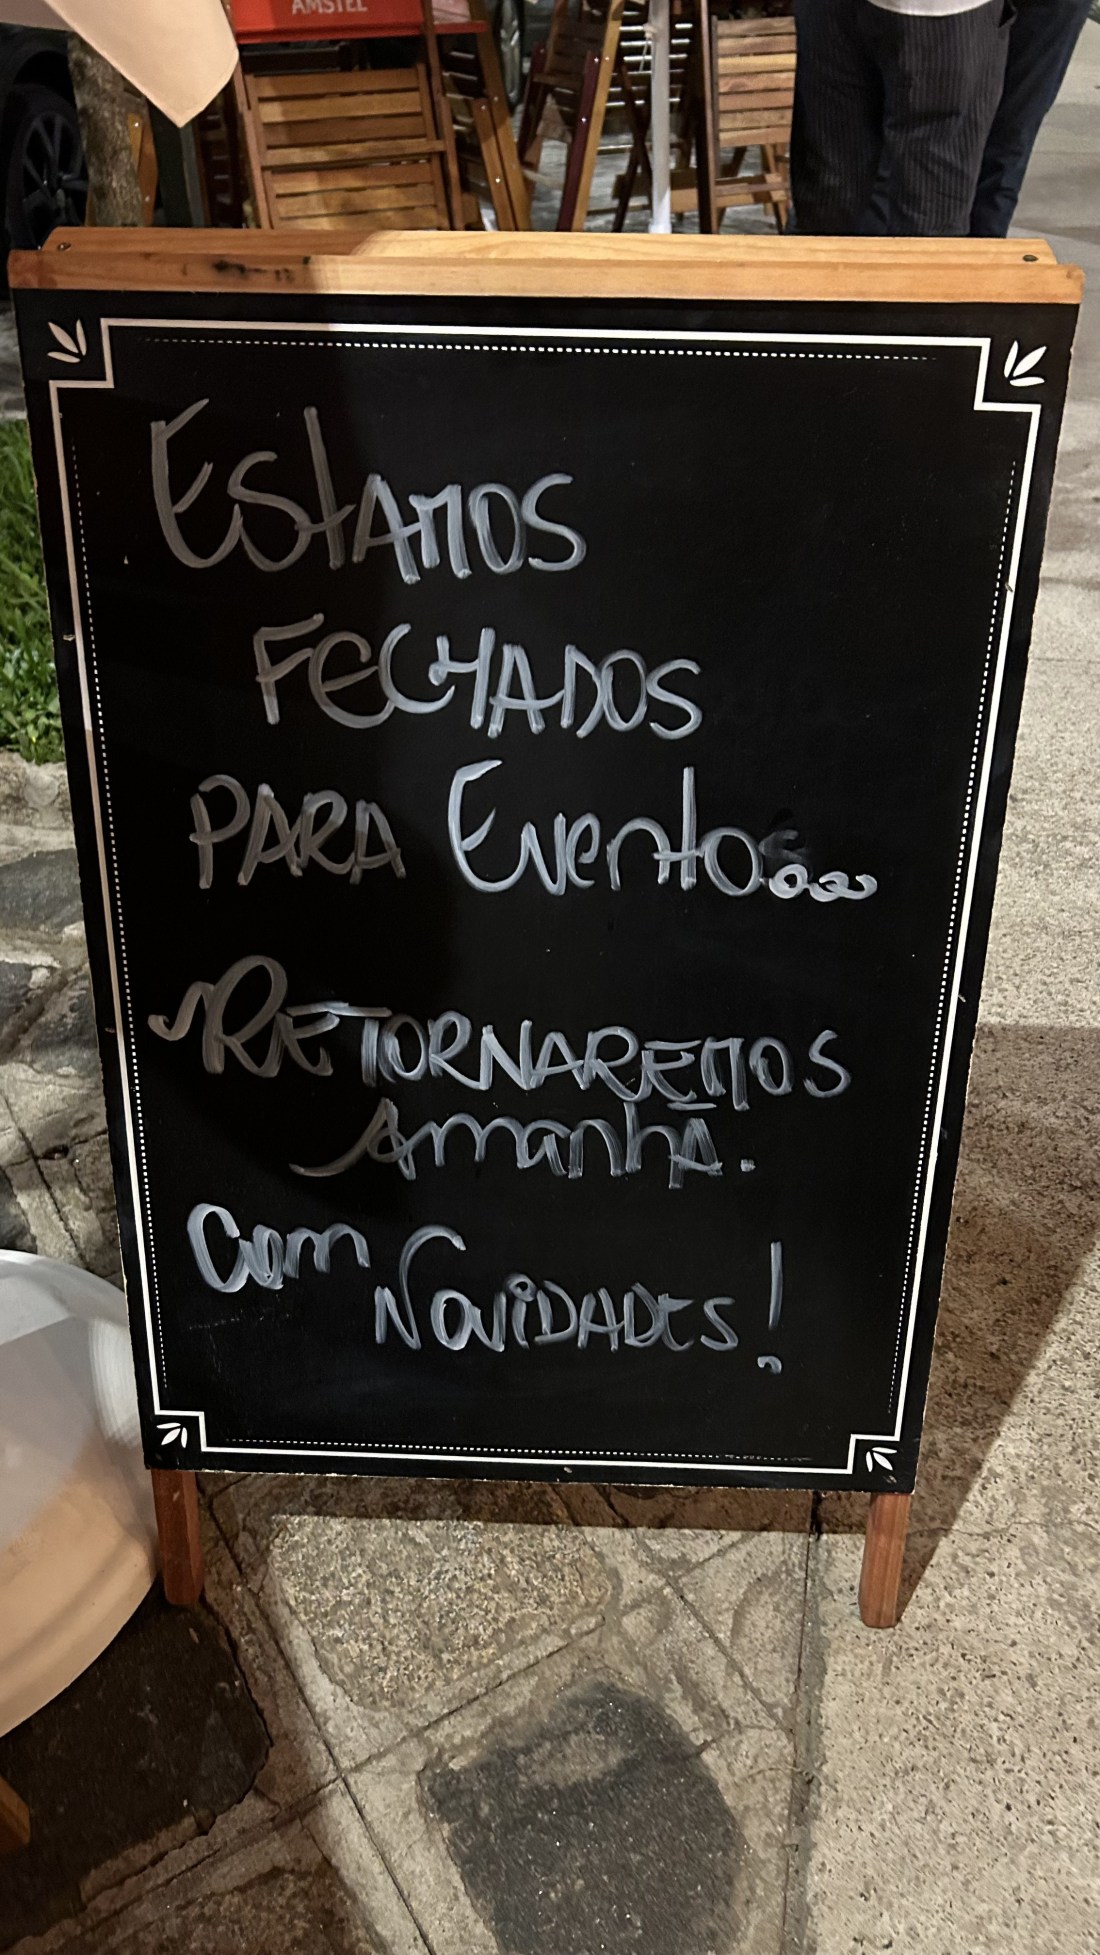 AMSTEL
Estamos
Fechados
para Evento...
Retornaremos
Amanhã.
Com
Novidades!